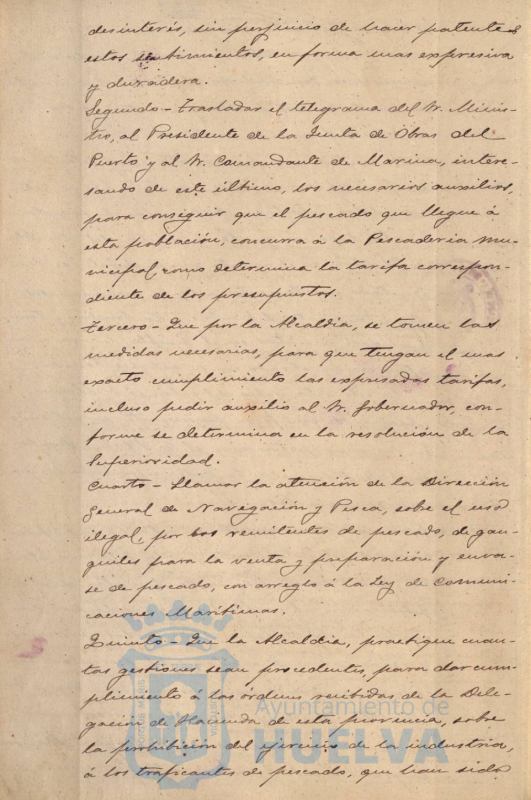 desinterés, sin perjuicio de hacer patentes
estos sentimientos, en forma mas expresiva
y duradera.
Segundo - Trasladar el telegrama del Sr. Minis-
tro, al Presidente de la Junta de Obras del
Puerto y al Sr. Comandante de Marina, intere-
sando de este último, los necesarios auxilios,
para conseguir que el pescado que llegue á
esta población, concurra á la Pescaderia mu-
nicipal, como determina la tarifa correspon-
diente de los presupuestos.
Tercero - Que por la Alcaldia, se tomen las
medidas necesarias, para que tengan el mas
exacto cumplimiento las expresadas tarifas,
incluso pedir auxilio al Sr. Gobernador, con-
forme se determina en la resolución de la
Superioridad.
Cuarto - Llamar la atención de la Dirección
General de Navegación y Pesca, sobre el uso
ilegal, por los remitentes de pescado, de gan-
guiles para la venta y preparación y enva-
se de pescado, con arreglo á la Ley de Comuni-
caciones Marítimas.
Quinto - Que la Alcaldia, practique cuan-
tas gestiones sean procedentes, para dar cum-
plimiento á las ordenes recibidas de la Dele-
gación de Hacienda de esta provincia, sobre
la prohibición del ejercicio de la industria,
á los traficantes de pescado, que han sido
Ayuntamiento de
HUELVA